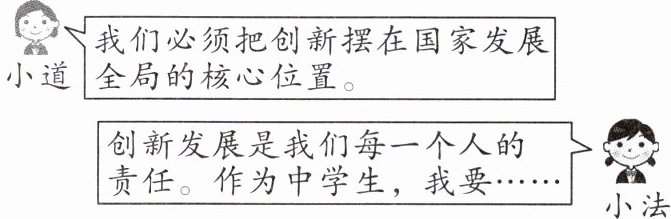 我们必须把创新摆在国家发展
全局的核心位置。
小道
创新发展是我们每一个人的
责任。作为中学生，我要……
小法